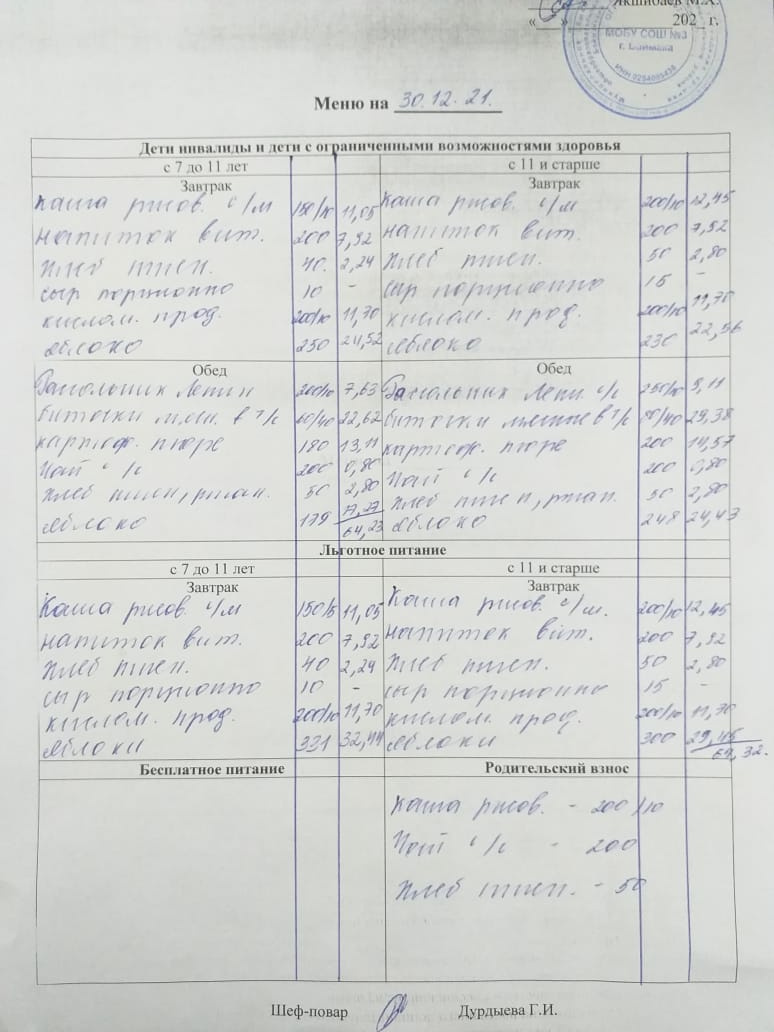 Якшибаев М.Х.
« » 202 г.
МОБУ СОШ №3
г. Баймака
ИНН 0254005436
Меню на 30.12.21.
Дети инвалиды и дети с ограниченными возможностями здоровья
с 7 до 11 лет с 11 и старше
Завтрак Завтрак
Каша рисов. с/м 150/10 11,05 Каша рисов. с/м 200/10 12,45
Напиток вит. 200 7,92 Напиток вит. 200 7,92
Хлеб пшен. 40 2,24 Хлеб пшен. 50 2,80
Сыр порционно 10 - Сыр порционно 15 -
Кислом. прод. 200/10 11,70 Кислом. прод. 200/10 11,70
Яблоко 250 24,52 Яблоко 230 22,56
Обед Обед
Рассольник Ленин 200/10 7,63 Рассольник Лени. с/с 250/10 9,11
биточки мясн. в т/с 60/40 22,62 биточки мясные в т/с 80/40 29,38
картоф. пюре 180 13,11 картоф. пюре 200 14,57
Чай с/с 200 0,80 Чай с/с 200 0,80
Хлеб пшен, ржан. 50 2,80 Хлеб пшен, ржан. 50 2,80
Яблоко 179 17,27 Яблоко 248 24,43
64,23
Льготное питание
с 7 до 11 лет с 11 и старше
Завтрак Завтрак
Каша рисов. с/м 150/5 11,05 Каша рисов. с/м. 200/10 12,45
Напиток вит. 200 7,92 Напиток вит. 200 7,92
Хлеб пшен. 40 2,24 Хлеб пшен. 50 2,80
Сыр порционно 10 - Сыр порционно 15 -
Кислом. прод. 200/10 11,70 Кислом. прод. 200/10 11,70
Яблоки 331 32,44 Яблоки 300 29,45
64,32.
Бесплатное питание Родительский взнос
Каша рисов. - 200/10
Чай с/с - 200
Хлеб пшен. - 50
Шеф-повар Дурдыева Г.И.